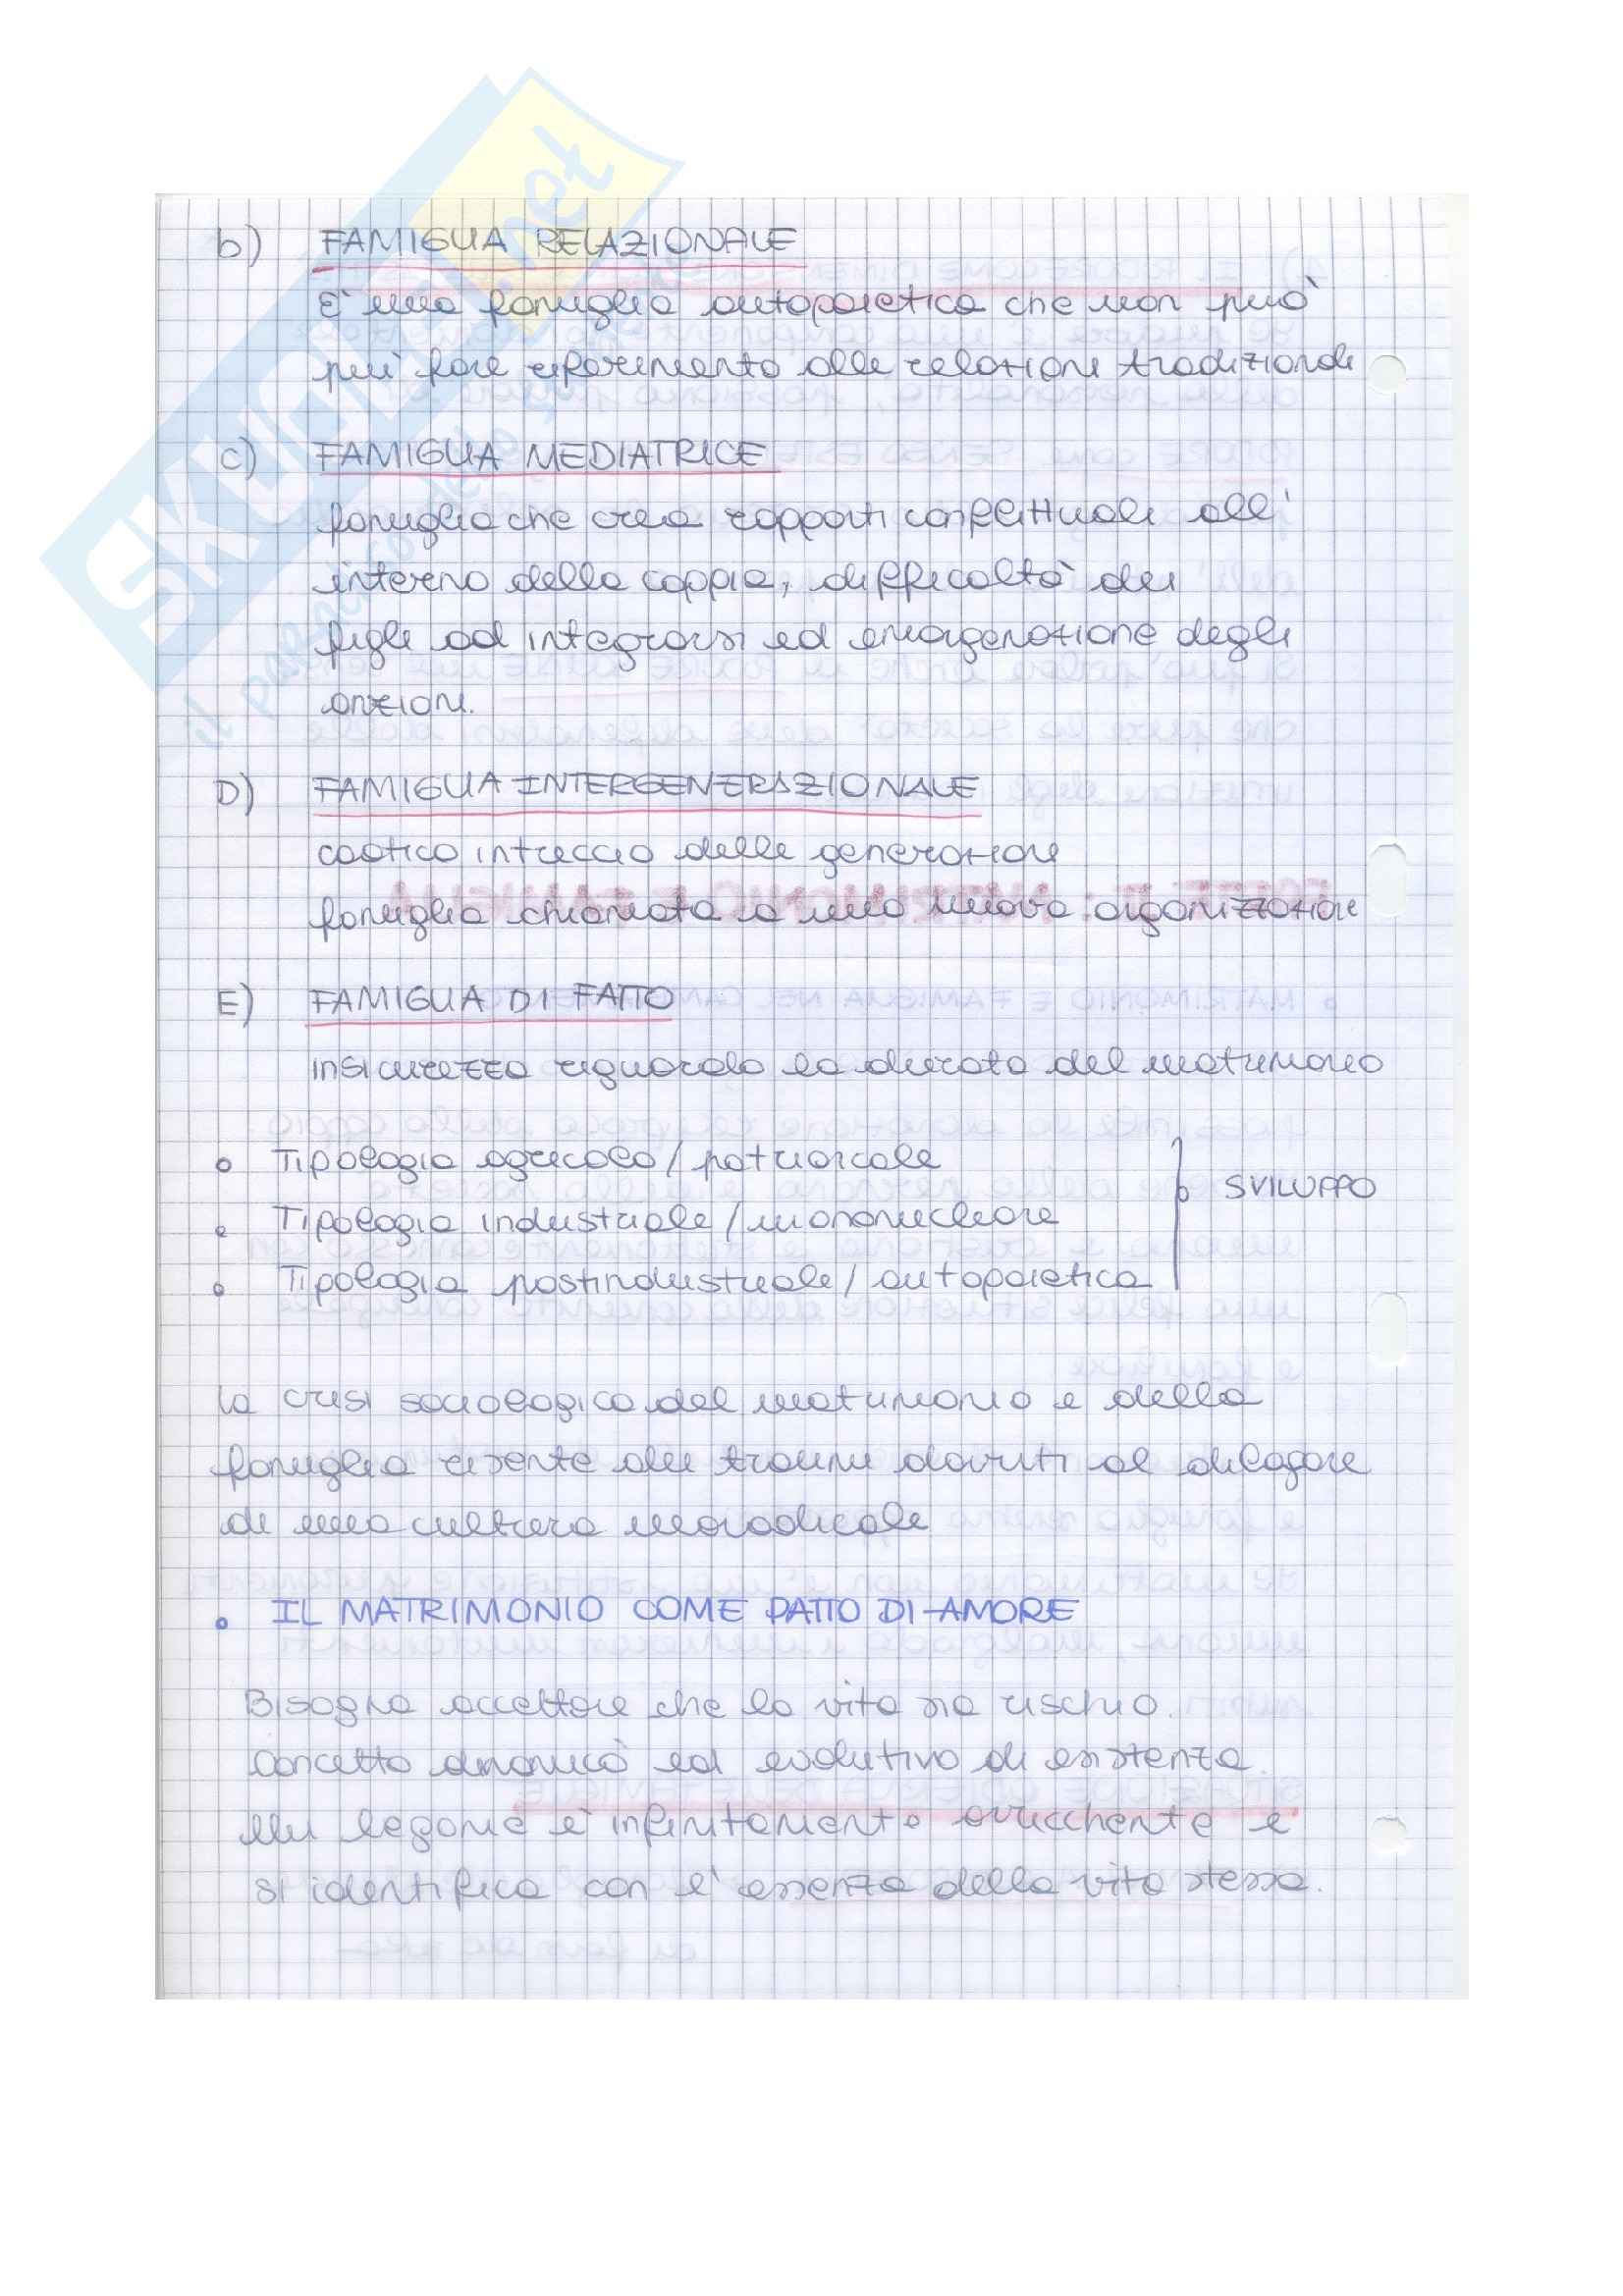 SKUOLA.net
b) FAMIGLIA RELAZIONALE
E' una famiglia autopoietica che non può
più fare riferimento alle relazioni tradizionali
c) FAMIGLIA MEDIATRICE
famiglia che crea rapporti conflittuali all'
interno della coppia, difficoltà dei
figli ad integrarsi ed emarginazione degli
anziani.
D) FAMIGLIA INTERGENERAZIONALE
caotico intreccio delle generazioni
famiglia chiamata a una nuova organizzazione
E) FAMIGLIA DI FATTO
insicurezza riguardo la durata del matrimonio
• Tipologia agricola / patriarcale
• Tipologia industriale / mononucleare
SVILUPPO
• Tipologia postindustriale / autopoietica
la crisi sociologica del matrimonio e della
famiglia risente dei traumi dovuti al dilagare
di una cultura
• IL MATRIMONIO COME PATTO DI AMORE
Bisogna accettare che la vita sia rischio.
Concetto dinamico ed evolutivo di esistenza.
Un legame è infinitamente arricchente e
si identifica con l'essenza della vita stessa.